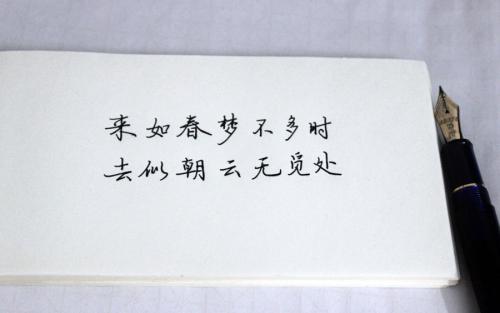 来如春梦不多时
去似朝云无觅处